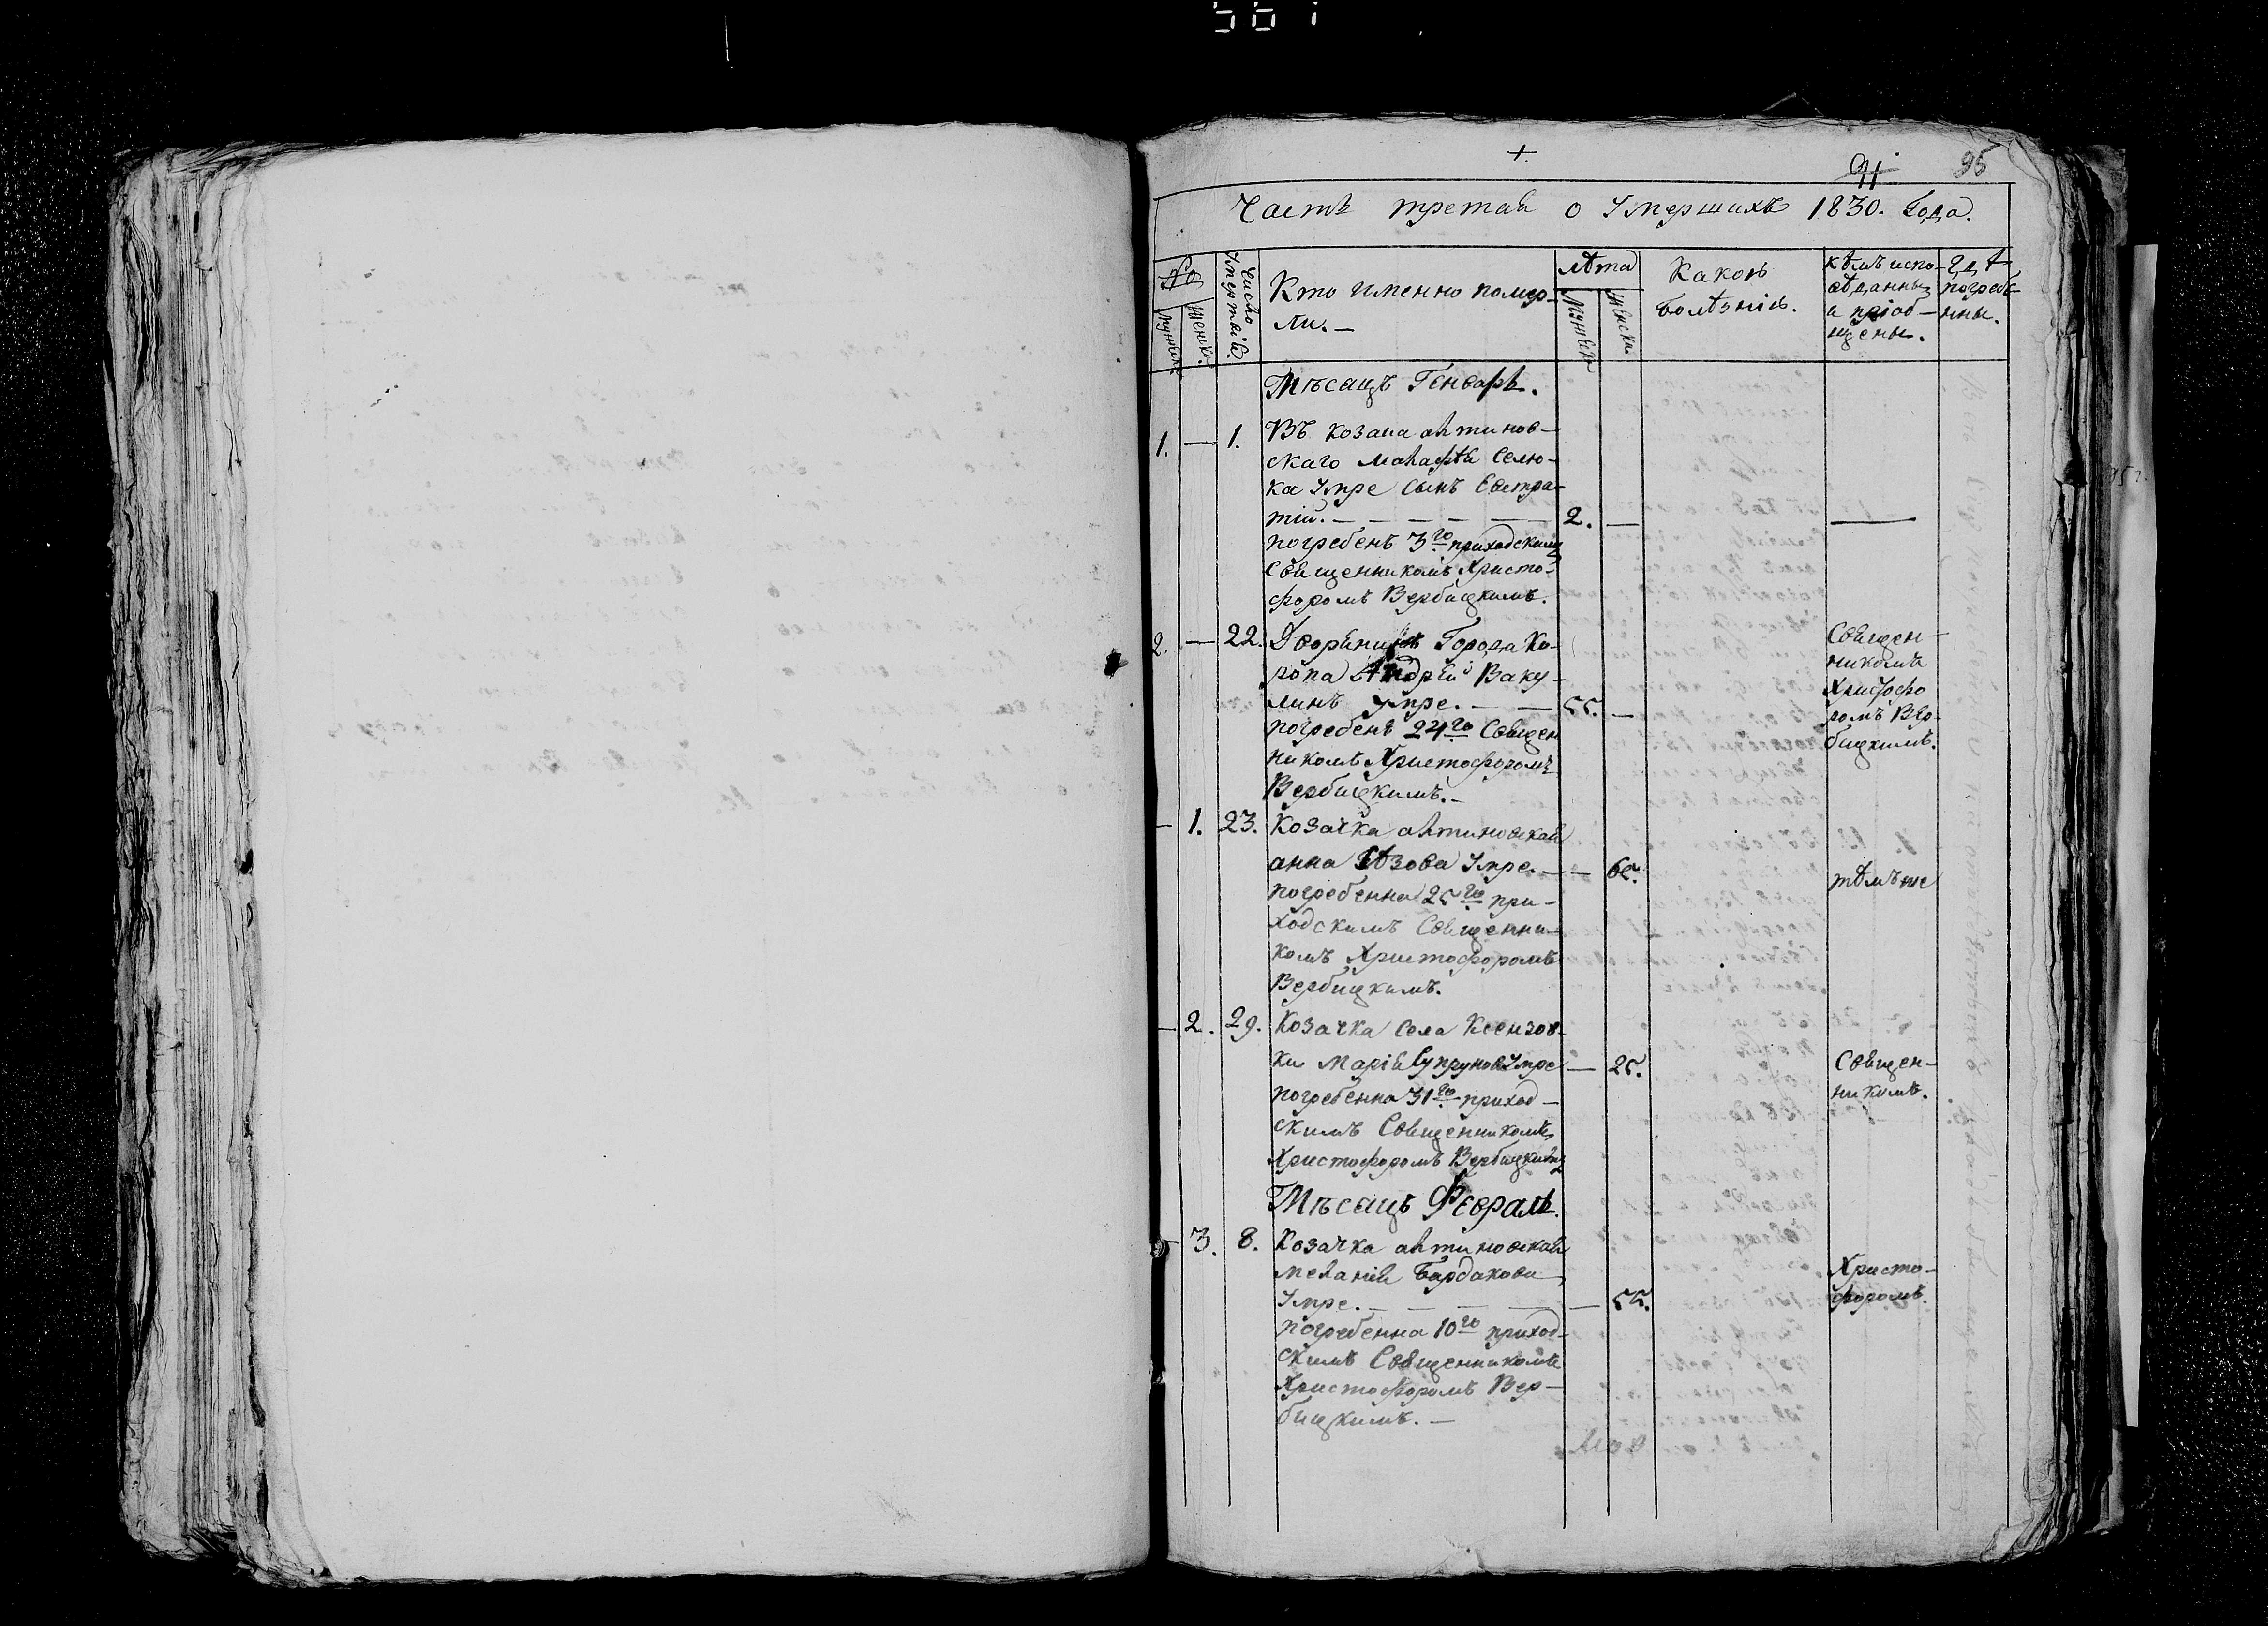 561
+.
91 95
Часть третая о Умершихъ 1830. Года.
№
мужеска
женска
Число
Умертвiя.
Кто именно помер-
ли. —
лѣта
мужска
женска
Какою
болѣзнiю.
кѣмъ испо-
вѣданны
и прiоб-
щены.
гдѣ
погребе-
нны.
Мѣсацъ Генварь.
1. — 1. Въ козака алтинов-
скаго Малафѣя Селю-
ка Умре Сынъ Евстра-
тiй. — — — — — 2. — —
погребенъ 3го приходскимъ
Священникомъ Христо-
форомъ Вербицкимъ.
2. — 22. Дворянинъ Города Ко-
ропа Андрей Ваку-
линъ умре. — — 55. —
погребенъ 24го Священ
никомъ Христофоромъ
Вербицкимъ. —
Священ-
никомъ
Христофо
ромъ Вер-
бицкимъ.
— 1. 23. Козачка алтиновская
анна Умре. — — 65. тѣмъ же
погребенна 25го при-
ходскимъ Священни-
комъ Христофоромъ
Вербицкимъ.
— 2. 29. Козачка Села Ксензов-
ки Марiя Супрунова Умре — 25.
погребенна 31го приход-
скимъ Священникомъ
Христофоромъ Вербицкимъ
Священ-
никомъ.
Мѣсацъ Февраль.
— 3. 8. Козачка алтиновская
меланiя Бардакова
Умре. — — — — — 55.
погребенна 10го приход-
скимъ Священникомъ
Христофоромъ Вер-
бицкимъ. —
Христо-
форомъ.